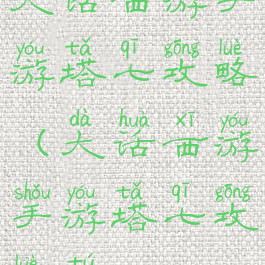 大话西游手
yóu tǎ qī gōng lüè
游塔七攻略
dà huà xī yóu
(大话西游
shǒu yóu tǎ qī gōng
手游塔七攻